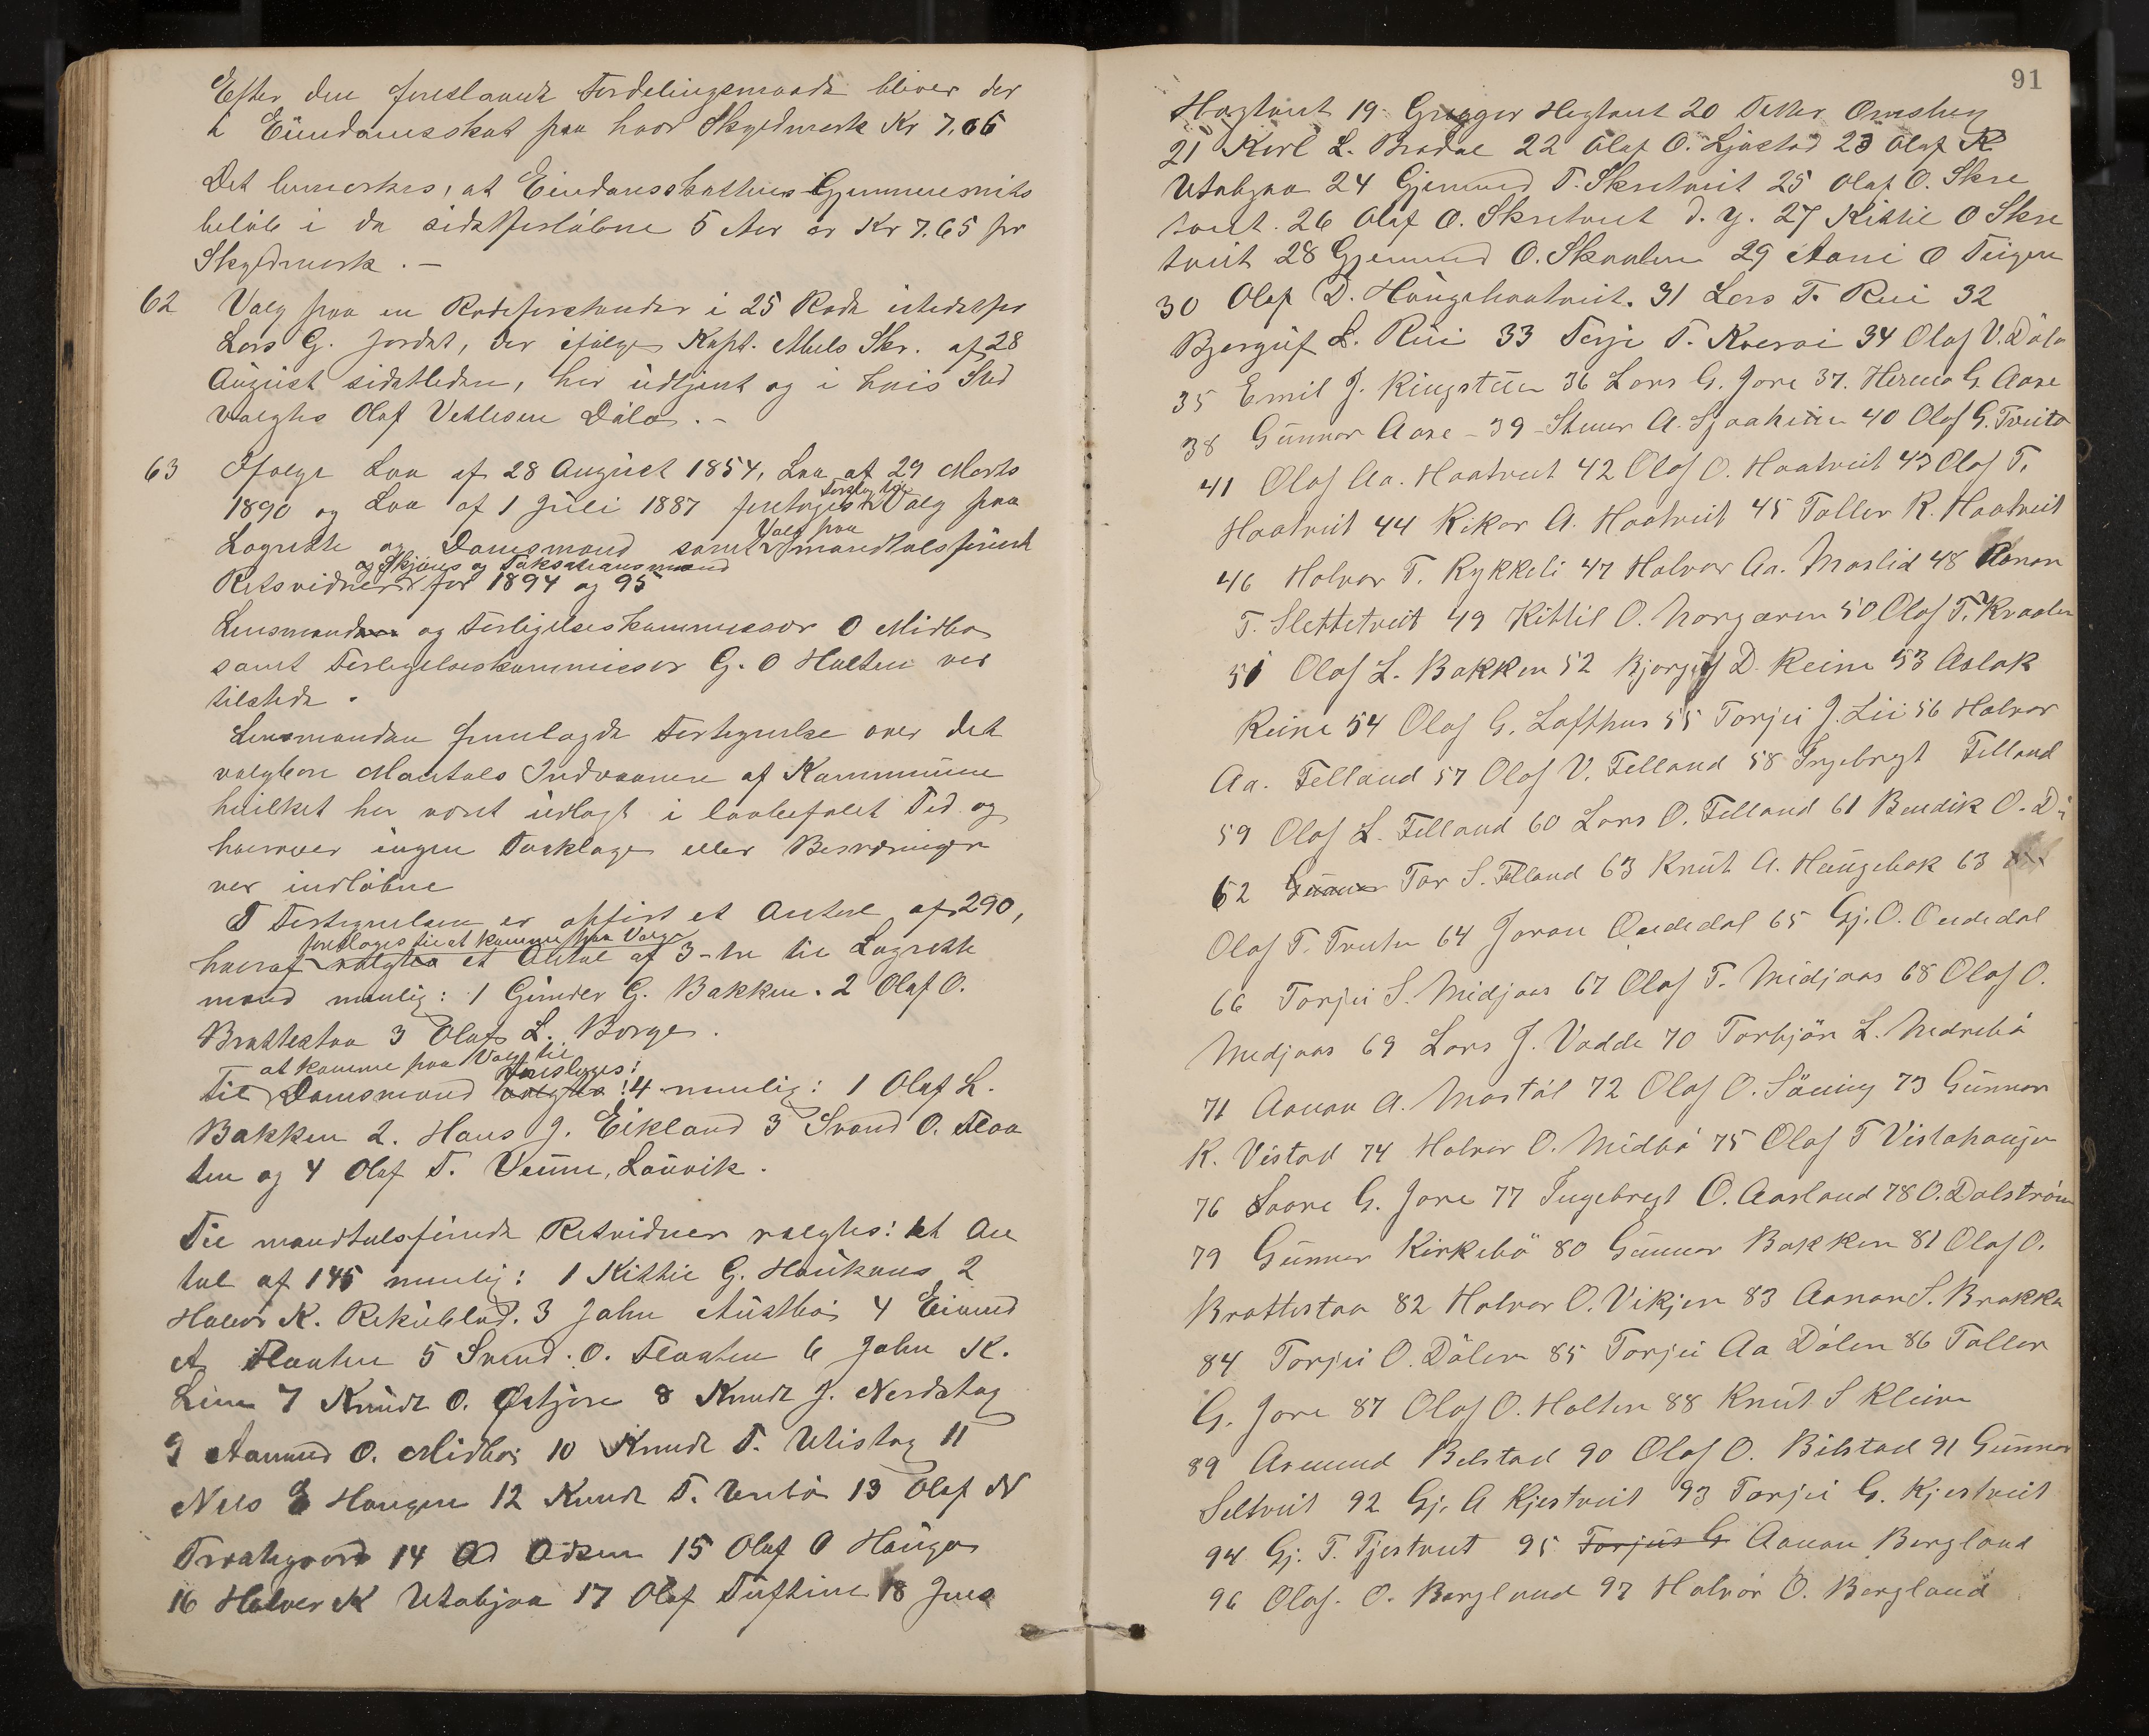 Efter den foreslaaede Fordelingsmaade bliver der
i Eiendomsskat paa hver Skyldmark Kr 7,66
Det bemerkes, at Eiendomsskattens Gjennemsnits
beløb i de sidstforløbne 5 Aar er Kr 7.65 pr
Skyldmark. —
62 Valg paa en Rodeforstander i 25 Rode istedetfor
Lars G. Jordet, der ifølge Kapt. Mels Skr. af 28
August sidstleden, har udtjent og i hvis Sted
valgtes Olaf Vetlesen Dåla. –
63 Ifølge Lov af 28 August 1854, Lov af 29 Marts
1890 og Lov af 1 Juli 1887 foretoges Forslag til Valg paa
Lagrette og Domsmænd samt Valg paa mandtalsførte
og Skjøns og Taksationsmænd
Retsvidner for 1894 og 95
Lensmanden og Forligelseskommissær O Midbø
samt Forligelseskommissær G. O Holten var
tilstede.
Lensmanden fremlagde Fortegnelse over det
valgbare Mantals Indvaanere af Kommunen
hvilket har været udlagt i lovbefalet Tid og
hvorover ingen Paaklage eller Besværinger
var indløbne
I Fortegnelsen er opført et Antal af 290,
foreslages til at komme paa Valg
hvoraf valgtes et Antal af 3-tre til Lagrette
mænd nemlig: 1 Gunder G. Bakken. 2 Olaf O.
Brattestaa 3 Olaf L. Borge.
at komme paa Valg til foreslages:
Til Domsmænd valgtes: 4 nemlig: 1 Olaf L.
Bakken 2. Hans J. Eikland 3 Svend O. Flaa
ten og 4 Olaf T. Venne, Lauvik.
Til mandtalsførte Retvidner valgtes: et An
tal af 145 nemlig: 1 Kittil G. Haukaas 2
Halvor K. Rekublad. 3 John Austbø 4 Eivind
A Flaaten 5 Svend. O. Flaaten 6 John K.
Lien 7 Knudt O. Østjore 8 Knudt J. Nerdstog
9 Aamund O. Midbø 10 Knudt T. Utistog 11
Nils G Haugen 12 Knudt T. Urbø 13 Olaf N
14 Ad Odsen 15 Olaf O Hauga
16 Halvor K Utabjaa 17 Olaf Tuftine 18 Jens
91
Hogtveit 19 Gregger Hogtveit 20 Petter Ormsbrey
21 Karl L. Brodal 22 Olaf O. Ljøstad 23 Olaf K
Utabjaa 24 Gjermund T. Skretveit 25 Olaf O. Skre
tveit. 26 Olaf O. Skretveit d. y. 27 Kittil O Skre
tveit 28 Gjermund O. Skaalen 29 Aani O Teigen
30 Olaf D. Haugehaatveit. 31 Lars T. Rui 32
Bjørguf L. Rui 33 Terje T. Kverni 34 Olaf V. Dåla
35 Emil J. Ringstuen 36 Lars G. Jore 37. Herma G. Aase
38 Gunnar Aase – 39 – Steinar A. Sjaaheim 40 Olaf G. Tveito
41 Olaf Aa. Haatveit 42 Olaf O. Haatveit 43 Olaf T.
Haatveit 44 Rikar A. Haatveit 45 Tallev R. Haatveit
46 Halvor T. Rykkeli 47 Halvor Aa. Maslid 48 Aanon
T. Slettetveit 49 Kittil O. Norgaren 50 Olaf T. Kvaalen
51 Olaf L. Bakken 52 Bjørguf D. Reine 53 Aslak
Reine 54 Olaf G. Lofthus 55 Torjei J. Lii 56 Halvor
Aa. Felland 57 Olaf V. Felland 58 Ingebregt Felland
59 Olaf L. Felland 60 Lars O. Felland 61 Bendik O. Dü
62 Gunnar Tor S. Felland 63 Knut A. Haugebak 63
Olaf T. Tveiten 64 Joran Ondedal 65 Gj. O. Ondedal
66 Torjei S. Midjaas 67 Olaf T. Midjaas 68 Olaf O.
Midjaas 69 Lars J. Vadde 70 Torbjön L. Nedrebö
71 Aanon A. Mostöl 72 Olaf O. Söning 73 Gunnar
K. Vistad 74 Halvor O. Midbö 75 Olaf T Vistahaugen
76 Saave G. Jore 77 Ingebregt O. Aasland 78 O. Dalström
79 Gunnar Kirkebö 80 Gunnar Bakken 81 Olaf O.
Brattestaa 82 Halvor O. Vikjen 83 Aanon S. Brakka
84 Torjei O. Dölen 85 Torjei Aa Dölen 86 Tallev
G. Jore 87 Olaf O. Holten 88 Knut S Kleiva
89 Asmund Bilstad 90 Olaf O. Bilstad 91 Gunnar
Seltveit 92 Gj. A Kjestveit 93 Torjei G. Kjestveit
94 Gj. T. Tjestveit 95 Torjus G Aanon Bergland
96 Olaf. O. Bergland 97 Halvor O. Bergland